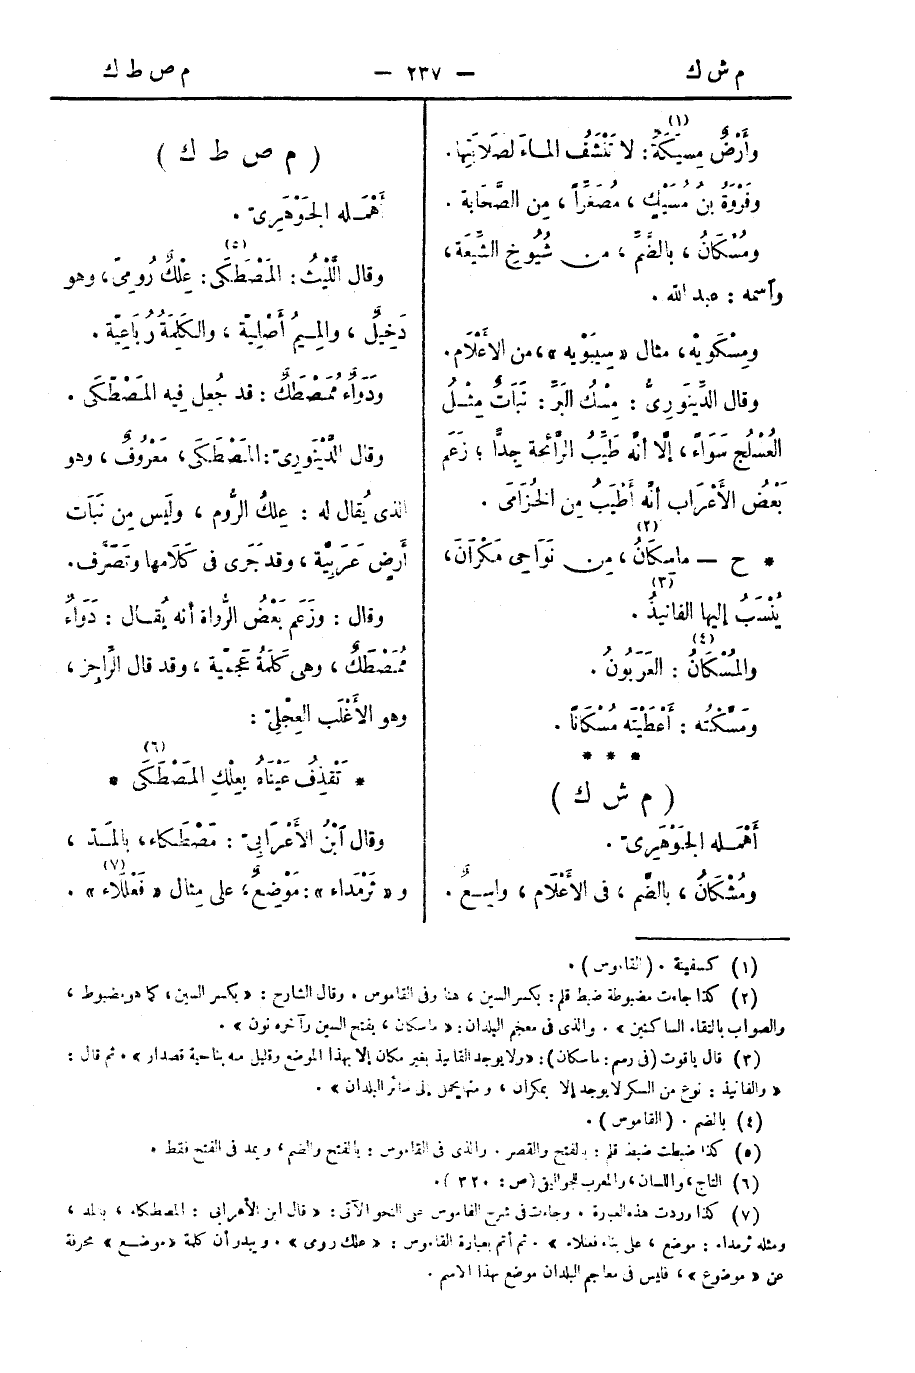 م ش ك — ٢٣٧ — م ص ط ك
وأَرْضٌ مَسِيكَةٌ(١): لا تَنْشَفُ الماءَ لصَلَابَتِها.
وفَرْوَةُ بنُ مُسَيْكٍ، مُصَغَّراً، مِن الصَّحَابَة.
ومُسْكَانُ، بالضَّمِّ، من شُيُوخِ الشِّيعَة،
وٱسمه: عبد الله.
ومِسْكَوَيْه، مثال «سِيبَوَيْه»، من الأَعْلَام.
وقال الدِّينَوَرِىُّ: مِسْكُ البَرِّ: نَبَاتٌ مِثْلُ
العُسْلُجِ سَوَاءً، إلَّا أنَّه طَيِّبُ الرَّائحة جِداًّ؛ زَعَم
بَعْضُ الأَعْرَاب أنَّه أَطْيَبُ مِن الخُزَامَى.
* ح – ماسِكَانُ(٢)، مِن نَوَاحِى مَكْرَانَ،
يُنْسَبُ إليها الفانِيذُ(٣).
والمُسْكَانُ(٤): العَرَبُونُ.
ومَسَّكْتُه: أَعْطَيْتَه مُسْكَاناً.
* * *
(م ش ك)
أَهْمَله الجَوْهَرِىّ.
ومُشْكَانُ، بالضَّم، فى الأَعْلَام، واسِعٌ.
(م ص ط ك)
أَهْمَله الجَوْهَرِىّ.
وقال اللَّيْثُ: المَصْطَكَى(٥): عِلْكٌ رُومِىّ، وهو
دَخِيلٌ، والمِيمُ أَصْلِيّة، والكَلِمَةُ رُبَاعِيّة.
ودَوَاءٌ مُمَصْطَكٌ: قد جُعِل فيه المَصْطَكَى.
وقال الدِّينَوَرِىّ: المَصْطَكَى، مَعْرُوفٌ، وهو
الذى يُقال له: عِلكُ الرُّوم، ولَيس مِن نَبَات
أَرضٍ عَرَبِيَّة، وقد جَرَى فى كَلَامها وتَصَرَّف.
وقال: وزَعَم بَعْضُ الرُّواة أنه يُقال: دَوَاءٌ
مُمَصْطَكٌ، وهى كَلِمَةٌ عَجَمِيّة، وقد قال الرَّاجِز،
وهو الأَغْلَب العِجْلِىّ:
* تَقْذِفُ عَيْنَاهُ بعِلْكِ المَصْطَكَى(٦) *
وقال ٱبْنُ الأَعْرَابِىّ: مَصْطَكاء، بالمَدّ،
و«ثَرْمَداء»: مَوْضِعٌ(٧)، على مِثال «فَعْلَلَاء».
(١) كسفينة. (القاموس).
(٢) كذا جاءت مضبوطة ضبط قلم: بكسر السين، هنا وفى القاموس. وقال الشارح: «بكسر السين، كما هو مضبوط،
والصواب بالتقاء الساكنين». والذى فى معجم البلدان: «ماسكان، بفتح السين وآخره نون».
(٣) قال ياقوت (فى رسم: ماسكان): «ولا يوجد الفانيذ بغير مكان إلا بهذا الموضع وقليل منه بناحية قصدار». ثم قال:
«والفانيذ: نوع من السكر لا يوجد إلا بمكران، ومنها يحمل إلى سائر البلدان».
(٤) بالضم. (القاموس).
(٥) كذا ضبطت ضبط قلم: بالفتح والقصر. والذى فى القاموس: بالفتح والضم، ويمد فى الفتح فقط.
(٦) التاج، واللسان، والمعرب للجواليقى (ص: ٣٢٠).
(٧) كذا وردت هذه العبارة. وجاءت فى شرح القاموس على النحو الآتى: «قال ابن الأعرابى: المصطكاء، بالمد،
ومثله ثرمداء: موضع، على بناء فعللاء». ثم أتم بعبارة القاموس: «علك رومى». ويبدر أن كلمة «موضع» محرفة
عن «موضوع»، فليس فى معاجم البلدان موضع بهذا الاسم.